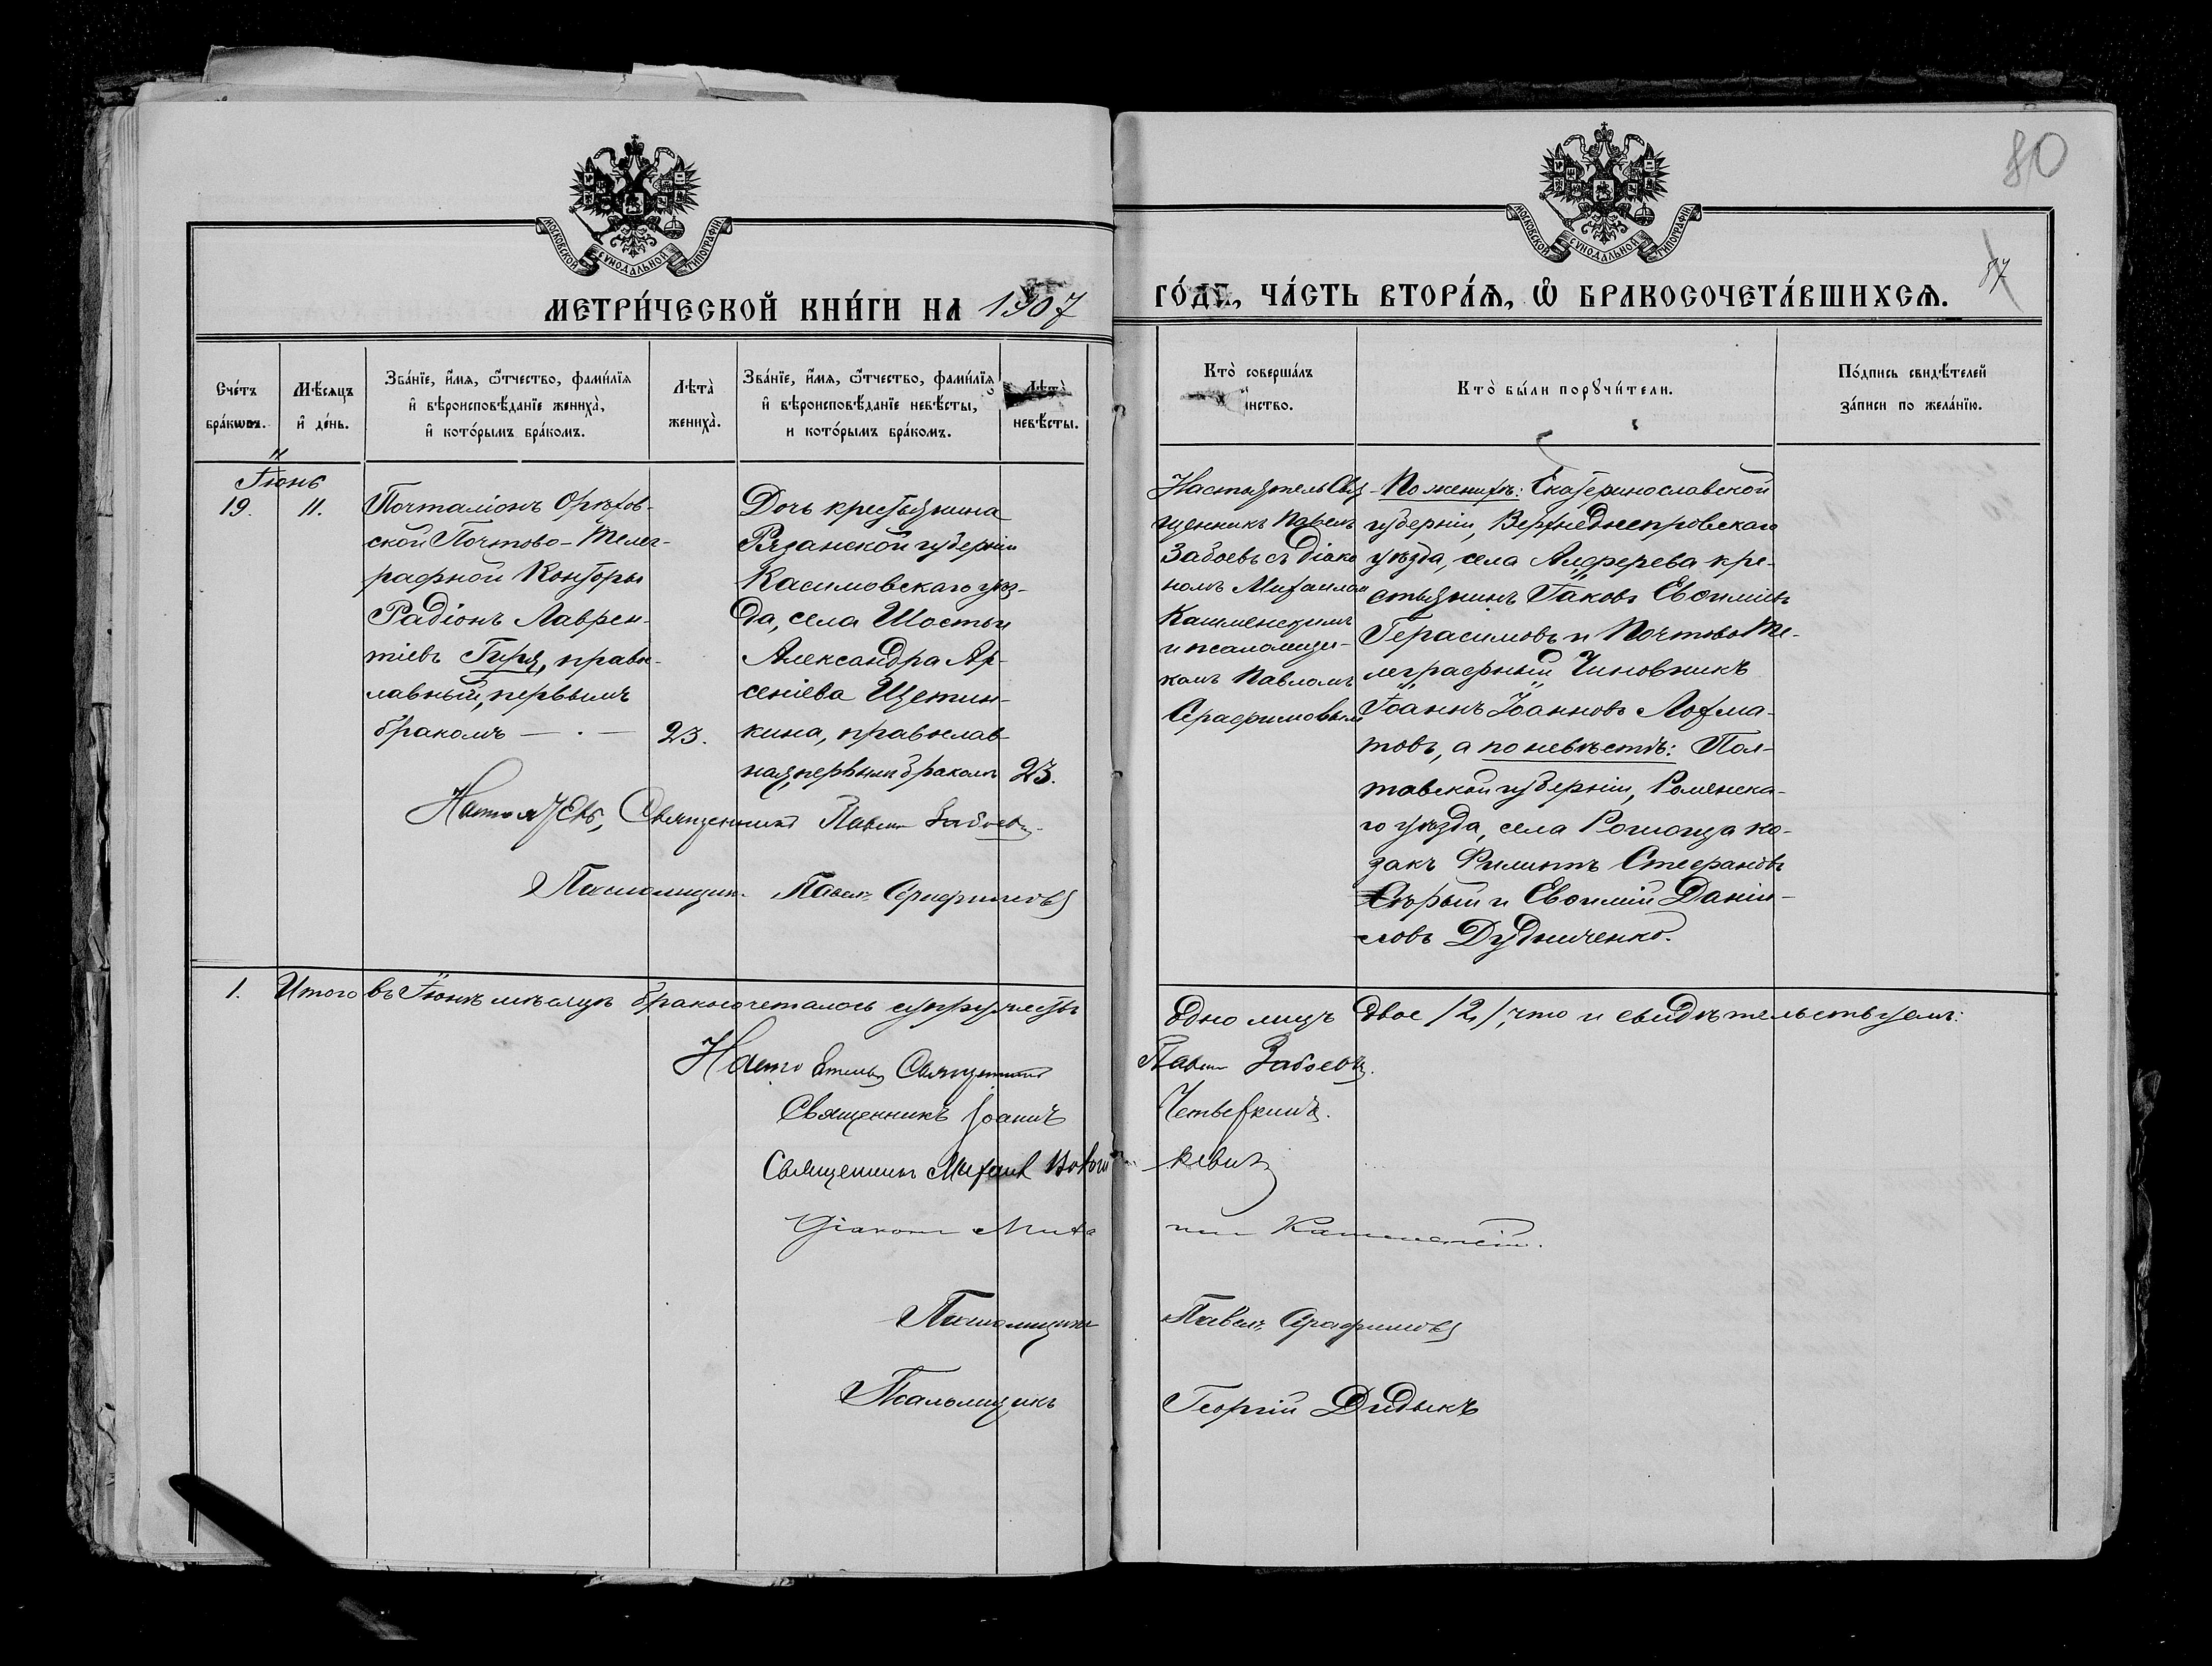 80
57
МОСКОВСКОЙ СѴНОДАЛЬНОЙ ТИПОГРАФІИ
МОСКОВСКОЙ СѴНОДАЛЬНОЙ ТИПОГРАФІИ
МЕТРИ́ЧЕСКОЙ КНИ́ГИ НА 1907
ГО́ДЪ, ЧА́СТЬ ВТОРА́Ѧ, Ѽ БРАКОСОЧЕТА́ВШИХСѦ.
Сче́тъ
бра́кѡвъ.
Мѣ́сѧцъ
и҆ де́нь.
Зва́нїе, и҆́мѧ, ѻ҆́тчество, фами́лїѧ
и҆ вѣроисповѣ́данїе жениха̀,
и҆ кото́рымъ бра́комъ.
Лѣта̀
жениха̀.
Зва́нїе, и҆́мѧ, ѻ҆́тчество, фами́лїѧ
и҆ вѣроисповѣ́данїе невѣ́сты,
и кото́рымъ бра́комъ.
Лѣта̀
невѣ́сты.
Кто̀ соверша́лъ
инство.
Кто̀ бы́ли порꙋчи́тели.
По́дпись свидѣ́телей
за́писи по жела́нїю.
Іюнь
19. 11.
Почталіонъ Орѣхов-
ской Почтово-Телег-
рафной Конторы
Радіонъ Лаврен-
тіевъ Гиря, правос-
лавный, первымъ
бракомъ — . — 23.
Дочь крестьянина
Рязанской губерніи
Касимовскаго уѣз-
да, села Шостьи
Александра Ар-
сеніева Щетин-
кина, православ-
ная, первымъ бракомъ 23.
Настоятель Свя-
щенникъ Павелъ
Забоевъ съ діако
номъ Михаиломъ
Каменскимъ
и псаломщи-
комъ Павломъ
Серафимовымъ
По женихѣ: Екатеринославской
губерніи, Верхнеднепровскаго
уѣзда, села Алферева кре-
стьянинъ Іаковъ Евѳиміевъ
Герасимовъ и Почтово Те-
леграфный Чиновникъ
Іоаннъ Іоанновъ Лохма-
товъ, а по невѣстѣ: Пол-
тавской губерніи, Роменска-
го уѣзда, села ко-
закъ Филиппъ Стефановъ
Сѣрый и Евѳимій Даніи-
ловъ Дудниченко.
Настоятель, Священникъ Павелъ Забоевъ
Псаломщик. Павелъ Серафимовъ
1. Итого въ Іюнѣ мѣсяцѣ бракосочеталось супружествъ
одно лицъ двое /2/, что и свидѣтельствуемъ:
Настоятель Священникъ Павелъ Забоевъ.
Священникъ Іоаннъ Четверкинъ.
Священникъ Михаилъ
Діаконъ Михаилъ Каменскій.
Псаломщикъ Павелъ Серафимовъ
Псаломщикъ Георгій Дидыкъ